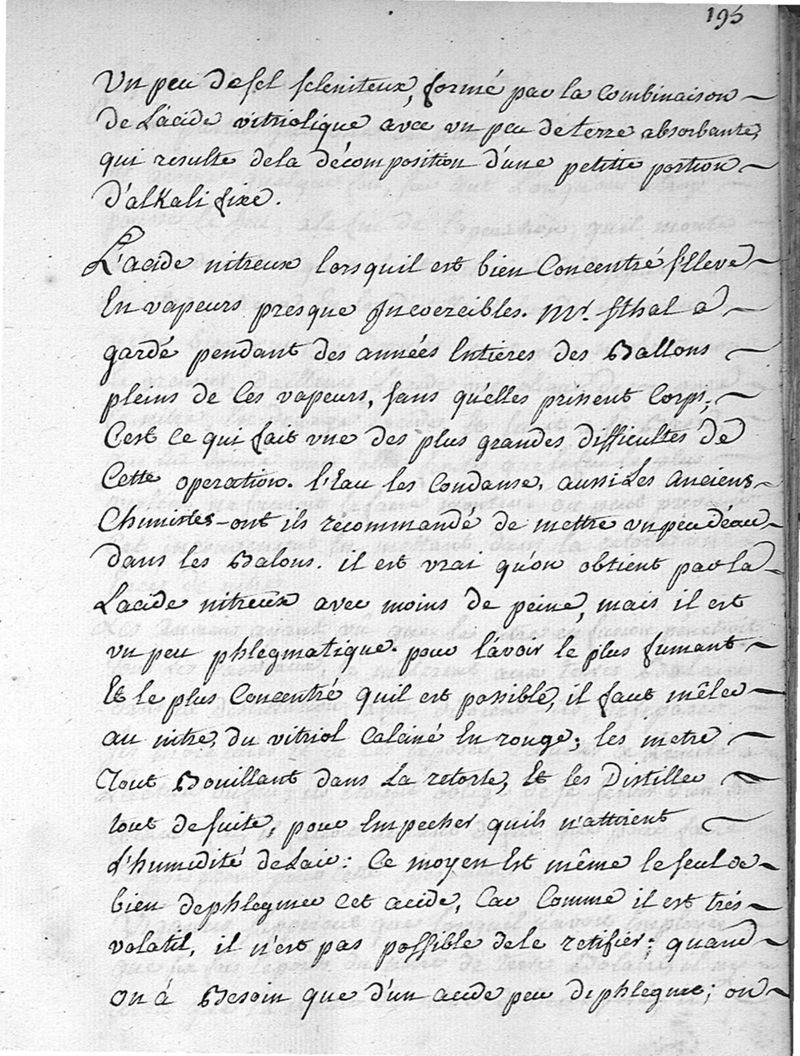 195
Un peu de sel seleniteux, formé par la Combinaison
de L'acide vitriolique avec un peu de terre absorbante,
qui resulte dela décomposition d'une petite portion
D'alkali fixe.
L'acide nitreux lorsquil est bien Concentré s'Eleve
En vapeurs presque Incoercibles. Mr. Sthal a
gardé pendant des années Entieres des Ballons
pleins de Ces vapeurs, sans quelles prissent Corps;
C'est ce qui fait une des plus grandes difficultés de
Cette operation. l'Eau les Condanse, aussi Les anciens
Chimistes ont ils recommandé de mettre un peu déau
dans les Balons. il est vrai quon obtient par la
Lacide nitreux avec moins de peine, mais il est
un peu phlegmatique. pour lavoir le plus fumant
Et le plus Concentré quil est possible, il faut mêler
au nitre, du vitriol Calciné En rouge; les metre
Tout Bouillant dans La retorte, Et les Distiller
tout de suite, pour Empecher quils n'attirent
l'humidité de Lair: Ce moyen Est même le seul de
bien dephlegmer Cet acide, Car Comme il est trés
volatil, il n'est pas possible dele retifier; quand
on à Besoin que d'un acide peu dephlegmé; on